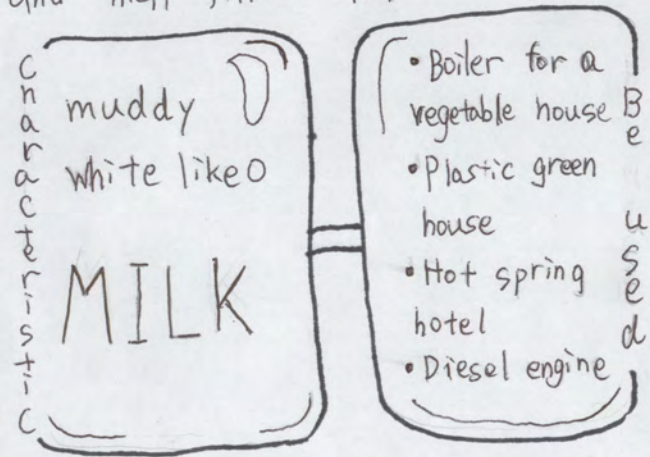 Characteristic
muddy
white like
MILK
• Boiler for a
vegetable house
• Plastic green
house
• Hot spring
hotel
• Diesel engine
Be used